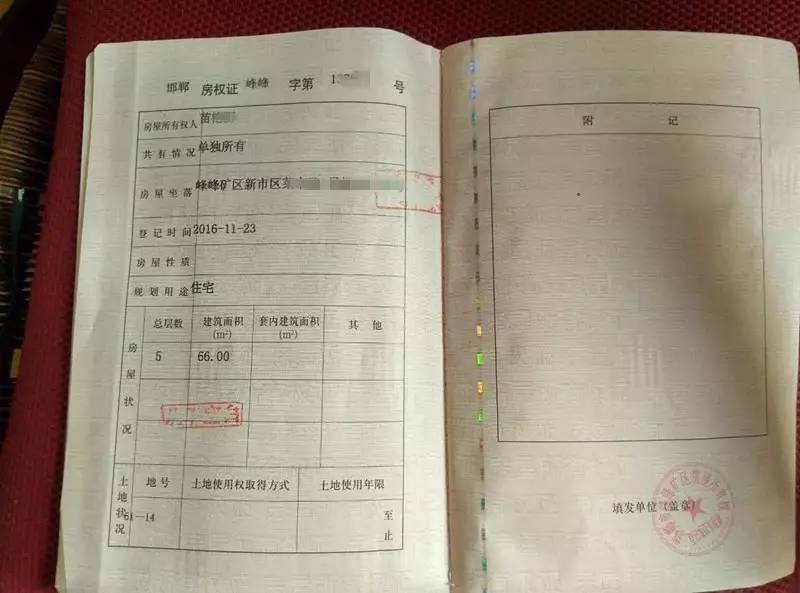 邯郸 房权证 峰峰 字第 号
房屋所有权人 苗
共有情况 单独所有
房屋坐落 峰峰矿区新市区
登记时间 2016-11-23
房屋性质
规划用途 住宅
房屋状况
总层数 建筑面积(m²) 套内建筑面积(m²) 其他
5 66.00
土地状况
地号 土地使用权取得方式 土地使用年限
1—14 至
止
附 记
填发单位(盖章)